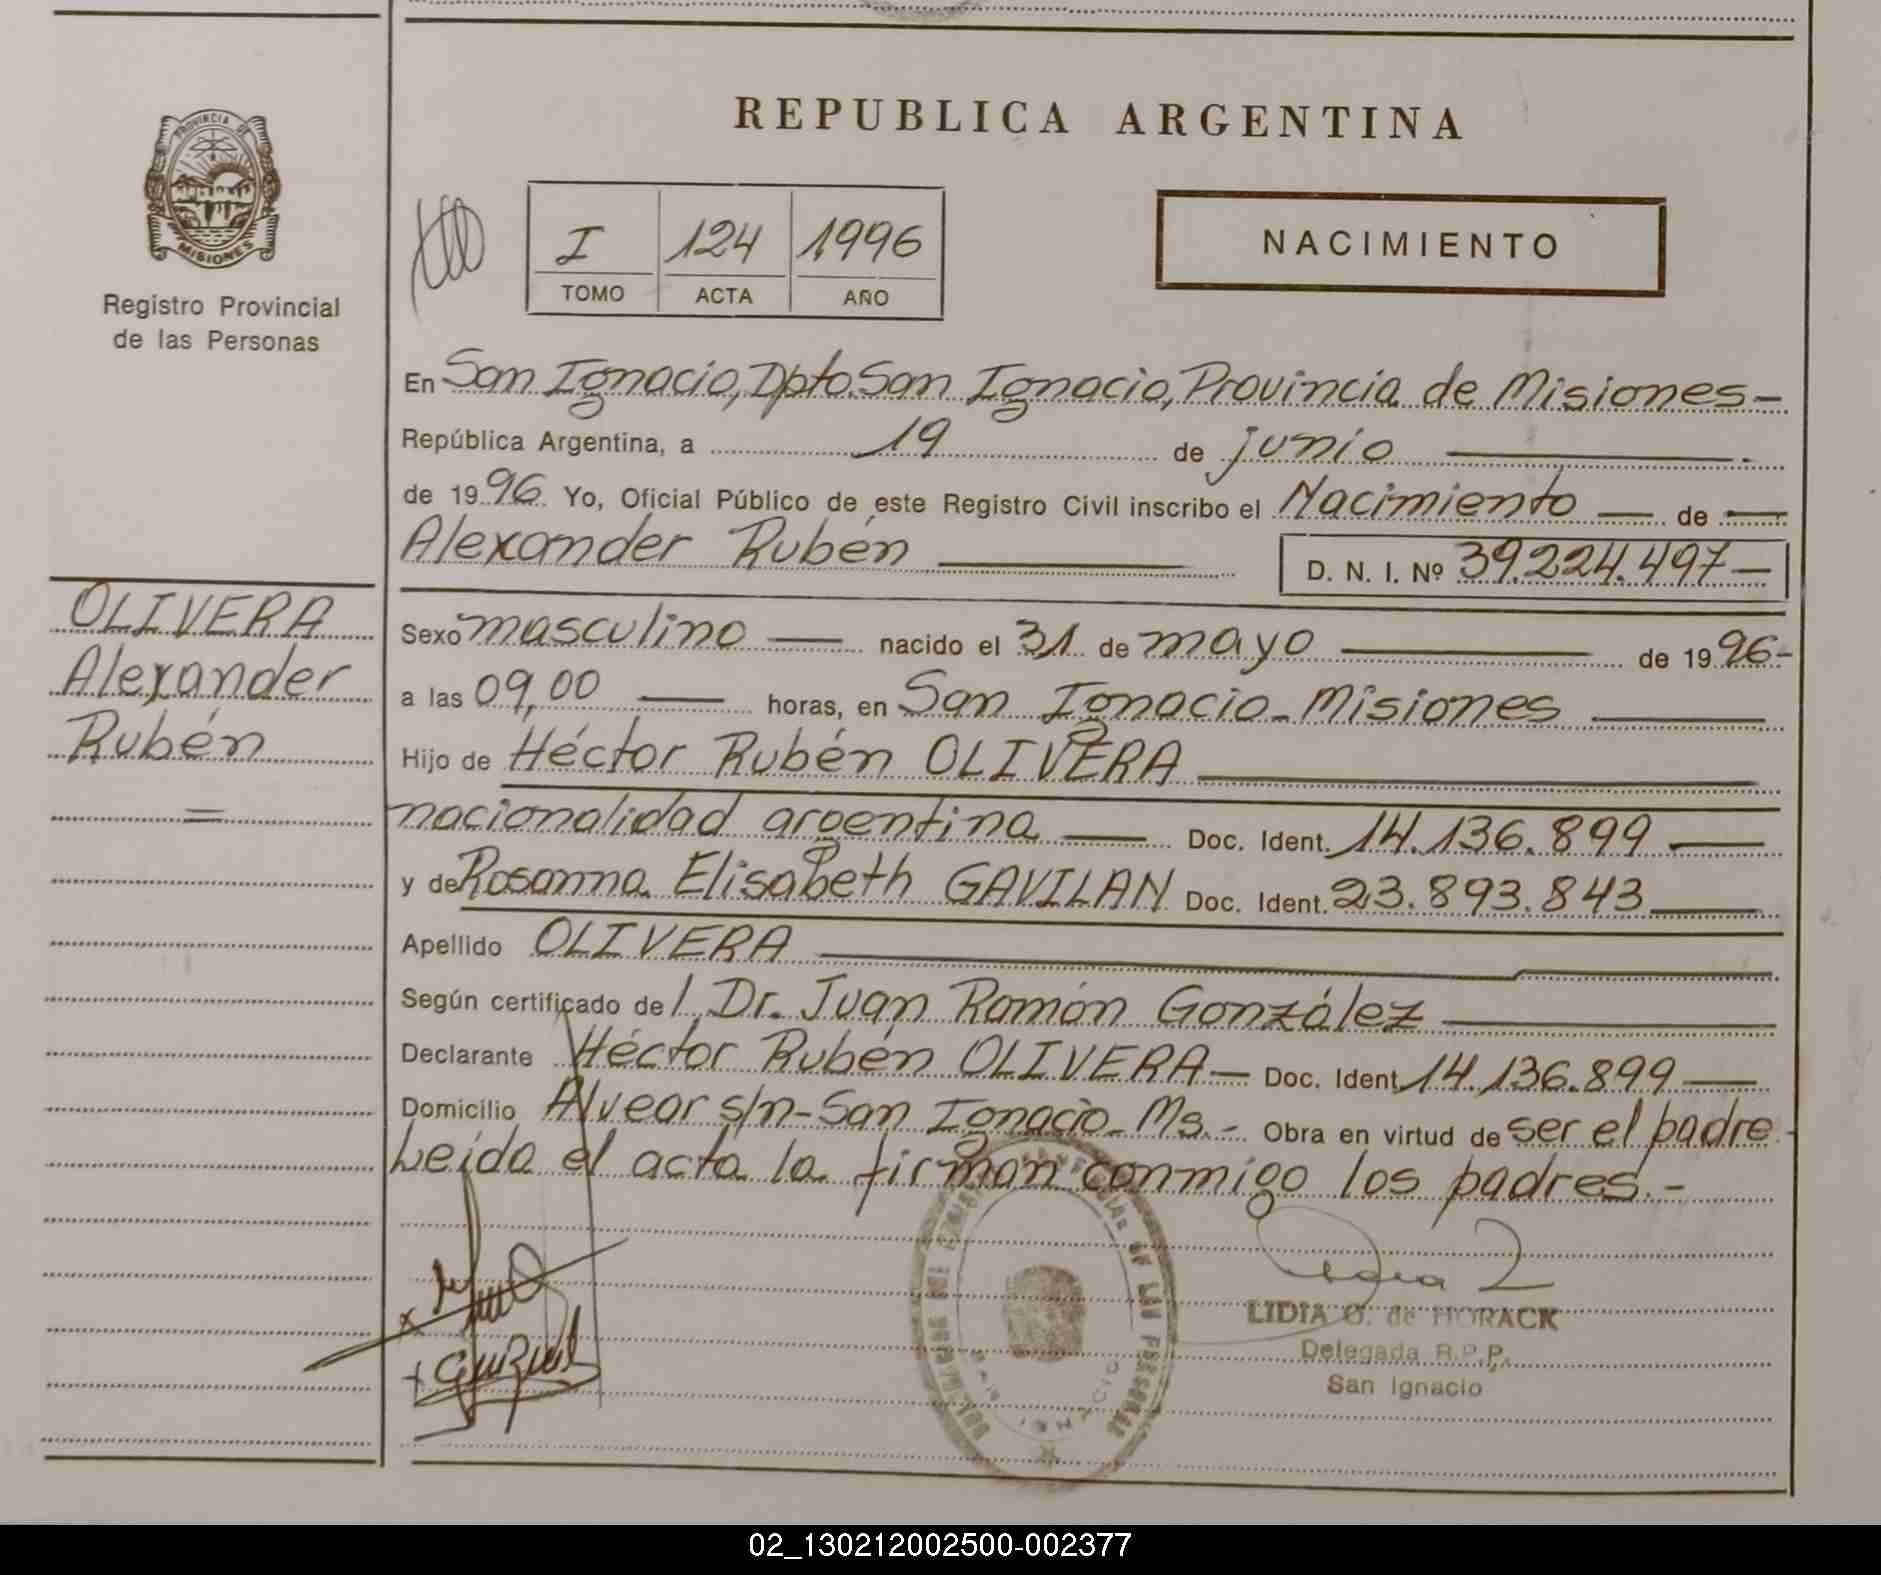 REPUBLICA ARGENTINA
PROVINCIA DE
MISIONES
Registro Provincial
de las Personas
I 124 1996
TOMO ACTA AÑO
NACIMIENTO
En San Ignacio, Dpto. San Ignacio, Provincia de Misiones-
República Argentina, a 19 de junio
de 1996 Yo, Oficial Público de este Registro Civil inscribo el Nacimiento de
Alexander Rubén D. N. I. Nº 39.224.497
OLIVERA
Alexander
Rubén
Sexo masculino nacido el 31 de mayo de 1996-
a las 09,00 horas, en San Ignacio- Misiones
Hijo de Héctor Rubén OLIVERA
nacionalidad argentina Doc. Ident. 14.136.899
y de Rosanna Elisabeth GAVILAN Doc. Ident. 23.893.843
Apellido OLIVERA
Según certificado de / Dr. Juan Ramón González
Declarante Héctor Rubén OLIVERA- Doc. Ident 14.136.899
Domicilio Alvear s/n-San Ignacio- Ms.- Obra en virtud de ser el padre.-
Leída el acta la firman conmigo los padres.-
LIDIA G. de HORACK
Delegada R.P.P.
San Ignacio
SAN IGNACIO
02_130212002500-002377